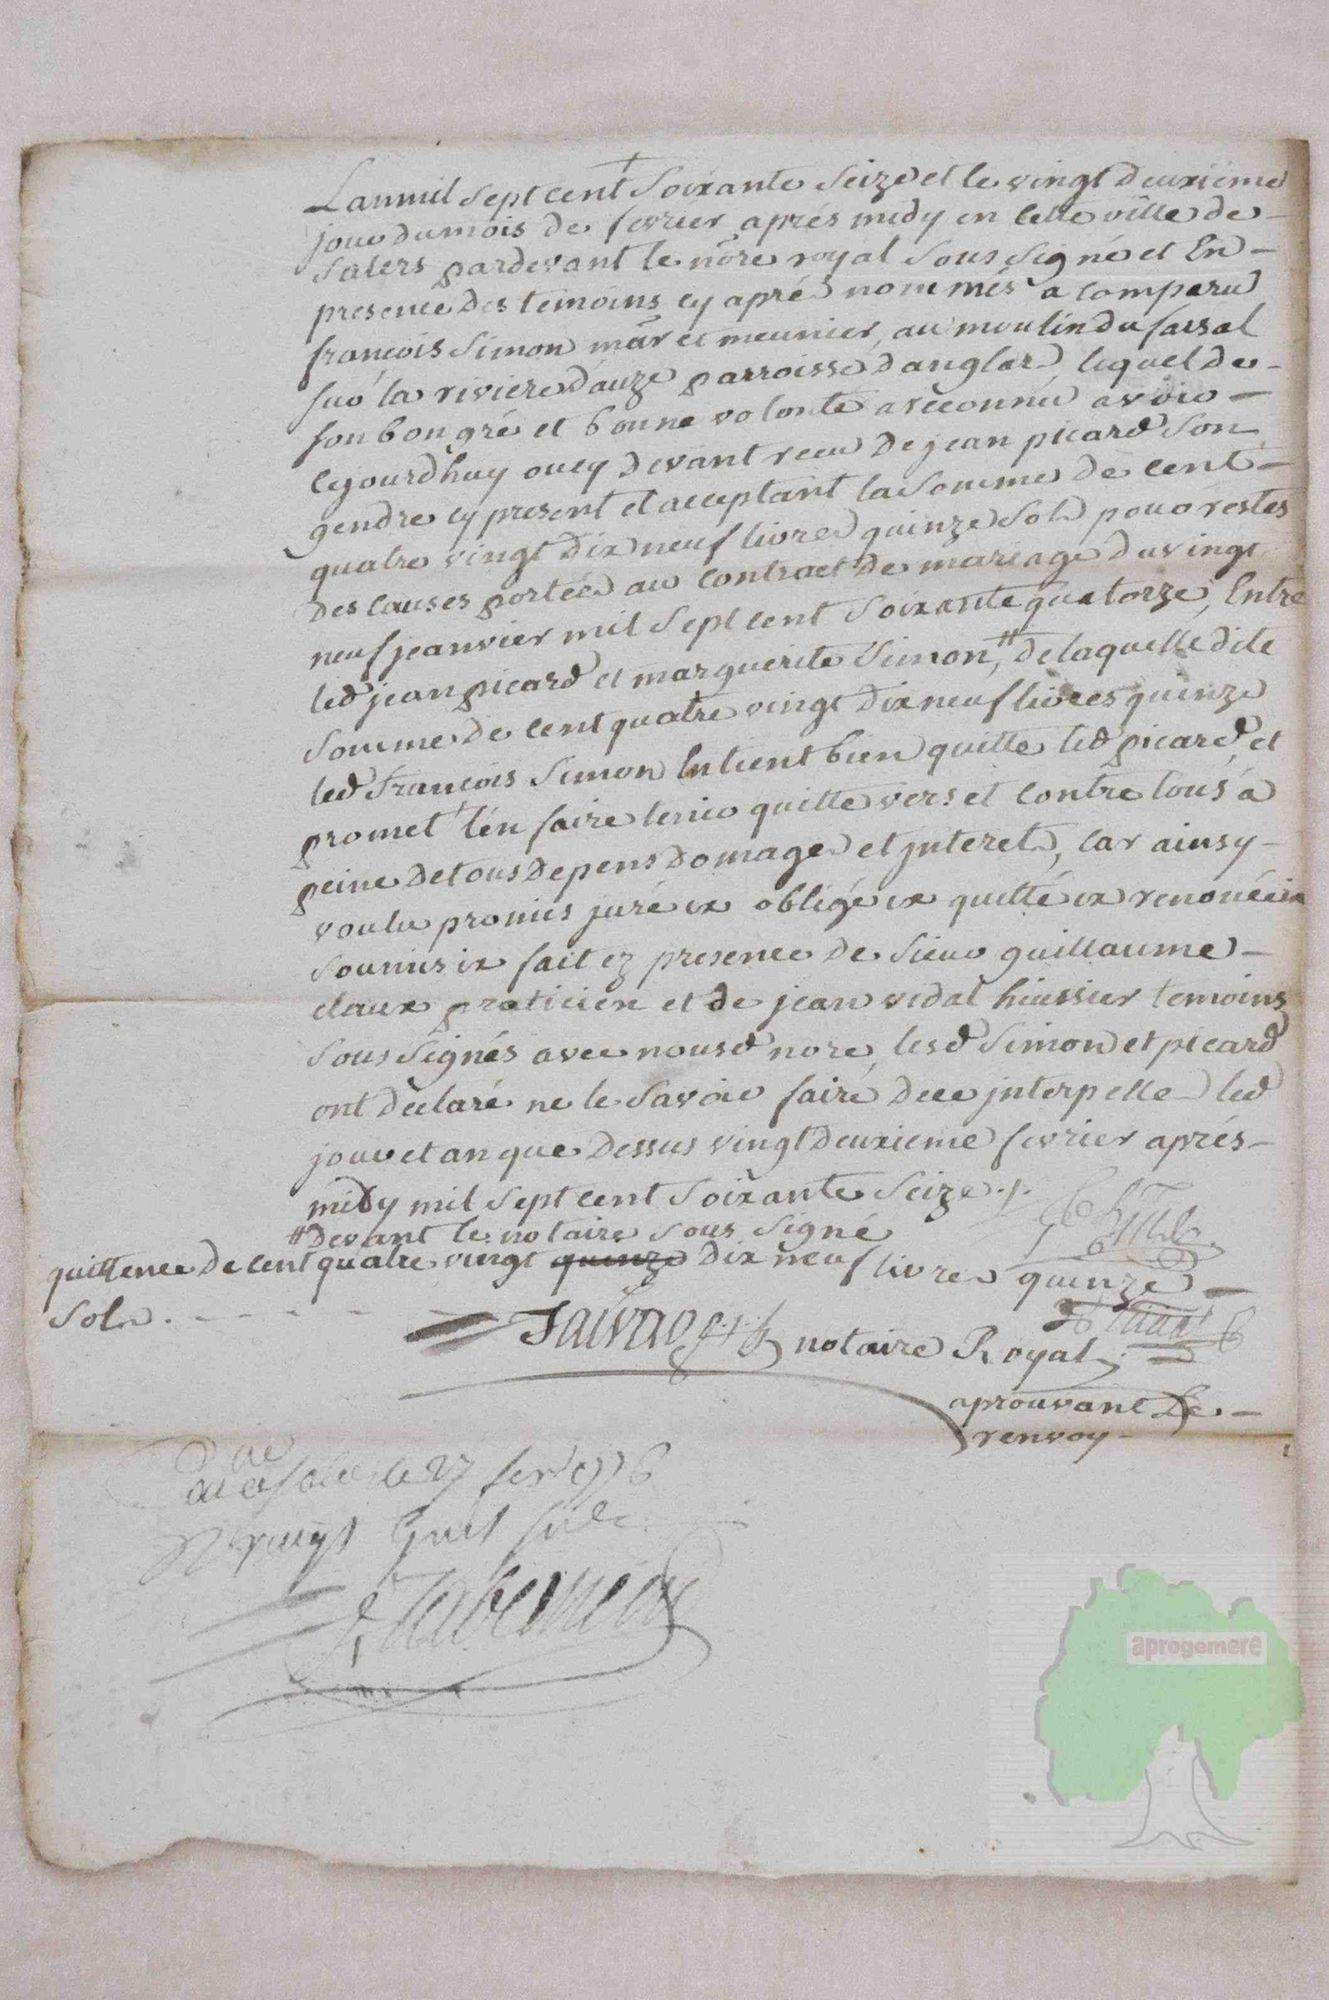 Lanmil sept cent soixante seize et le vingt deuxieme
jour du mois de fevrier aprés midy en cette ville de
salers pardevant le nore royal sous signé et En
presence des temoins cy apré nommés a comparu
françois Simon mar et meunier, au moulin du farsal
sur la riviere d'auze parroisse d'anglar, lequel de
son bon gré et bonne volonté a reconnu avoir
cejourdhuy ou cy devant recu de jean picard son
gendre cy present et acceptant la somme de cent
quatre vingt dix neuf livres quinze sols pour restes
des causes portées au contract de mariage du vingt
neuf jeanvier mil sept cent soixante quatorze, Entre
led jean picard et marguerite Simon, # de laquelle dite
somme de cent quatre vingt dix neuf livres quinze
led François Simon En tient bien quitte led picard, et
promet l'én faire tenir quitte vers et contre tous a
peine de tous depens domages et jnterets, car ainsy
voulu promis juré ix obligé ix quitté ix renoncé ix
soumis ix fait ez presence de sieur guillaume
claux praticien et de jean vidal huissier temoins
sous signés avec nousd nore, lesd Simon et picard
ont déclaré ne le savoir fairé dece jnterpellé led
jour et an que dessus vingt deuxieme fevrier aprés
midy mil sept cent soixante seize ./.
# devant le notaire sous signé
quittence de cent quatre vingt quinze dix neuf livres quinze
sols.
notaire Royal
aprouvant Le
renvoy
le 27 fevr 1776
vingt huit sols
aprogemere